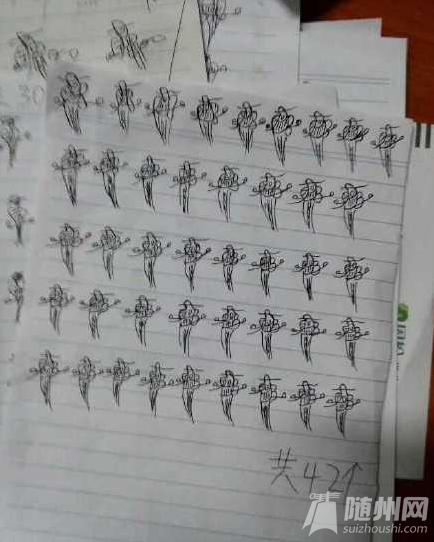 30
共42个
随州网
suizhoushi.com